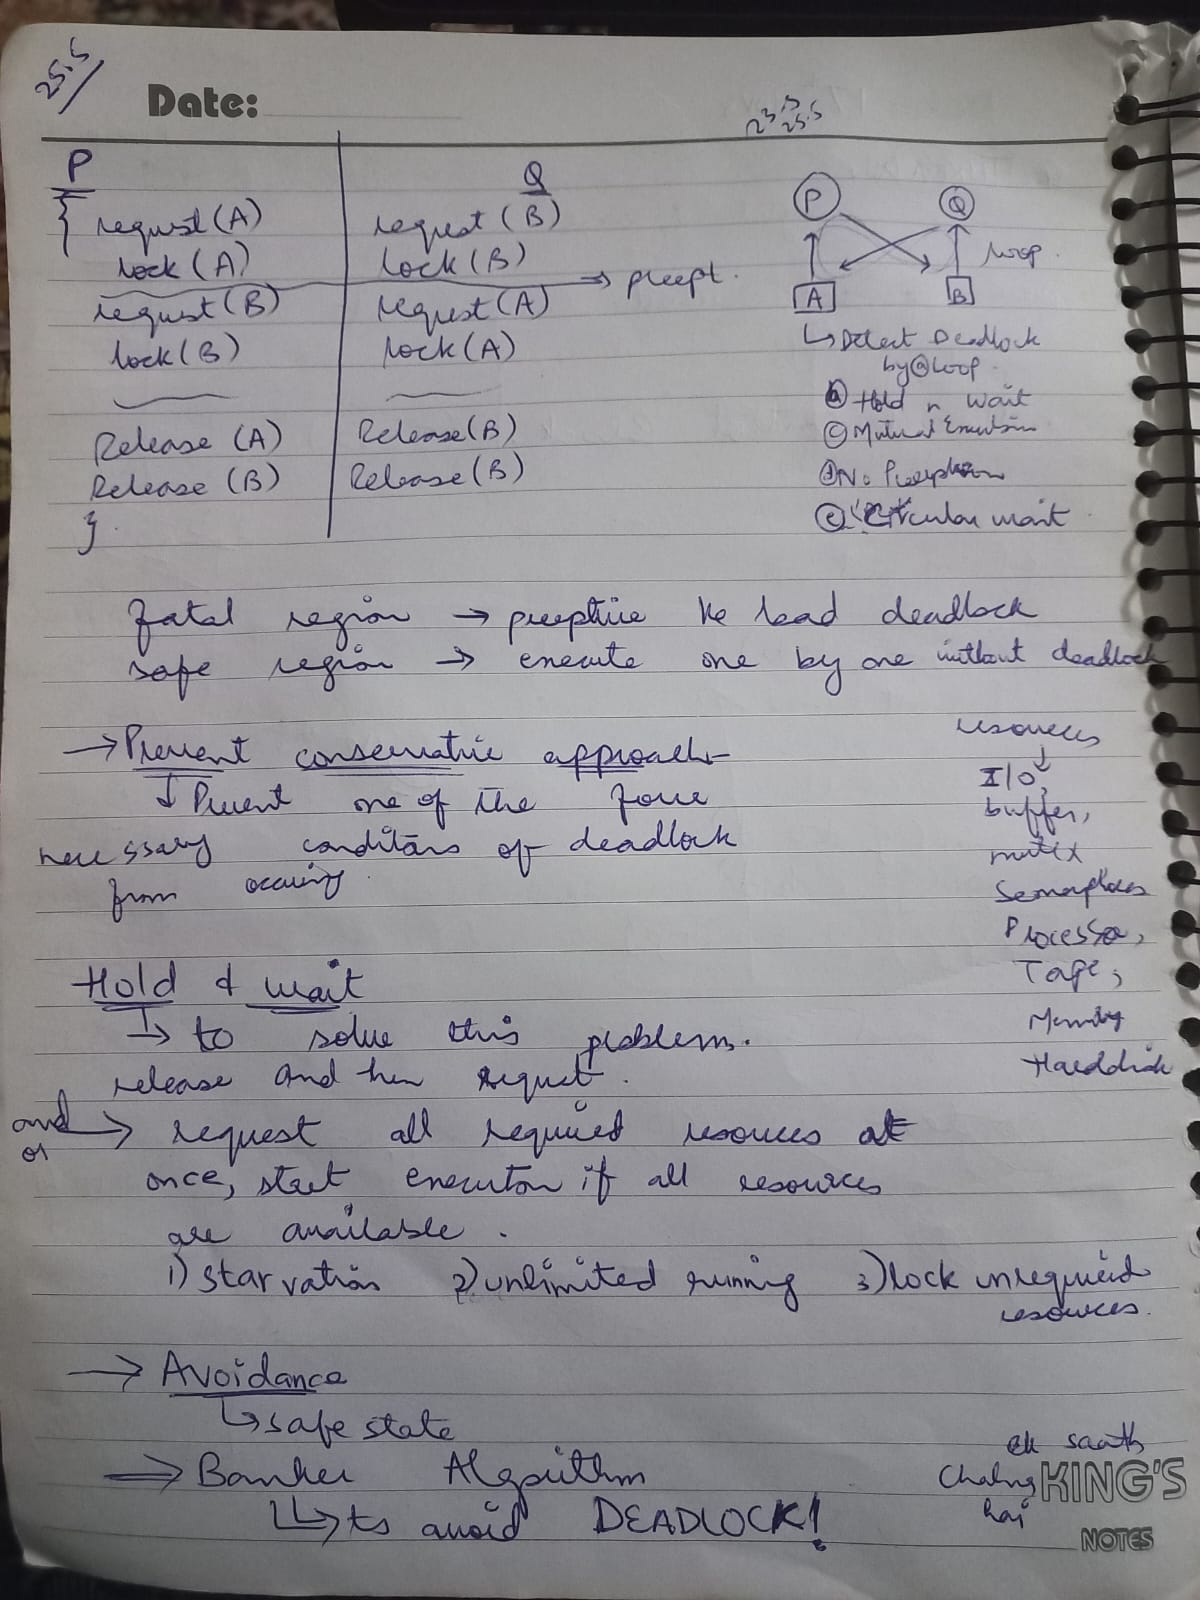 25.5
Date:
23.5
25.5
P
{ request (A)
lock (A)
request (B)
lock (B)
Release (A)
Release (B)
}
Q
request (B)
lock (B)
→ preept.
request (A)
lock (A)
Release (B)
Release (B)
P Q
loop.
A B
↳ Detect Deadlock
by ⓐ loop.
ⓑ Hold n wait
ⓒ Mutual Exculsion
ⓓ No Preeption
ⓔ Circular wait
fatal region → preeptive ke lead deadlock
safe region → execute one by one without deadlock
→ Prevent conservative approach
↓ Prevent one of the four
necessary conditions of deadlock
from occuring.
resources
↓
I/O,
buffer,
mutex
Semaphores
Processor,
Tape,
Memory
Harddisk
Hold & wait
↳ to solve this problem.
release and then request.
and
or → request all required resources at
once, start execution if all resources
are available.
1) starvation 2) unlimited running 3) lock unrequired
resources.
→ Avoidance
↳ safe state
⇒ Banker Algorithm
↳ to avoid DEADLOCK!
ek saath
Chalng
hai
KING'S
NOTES